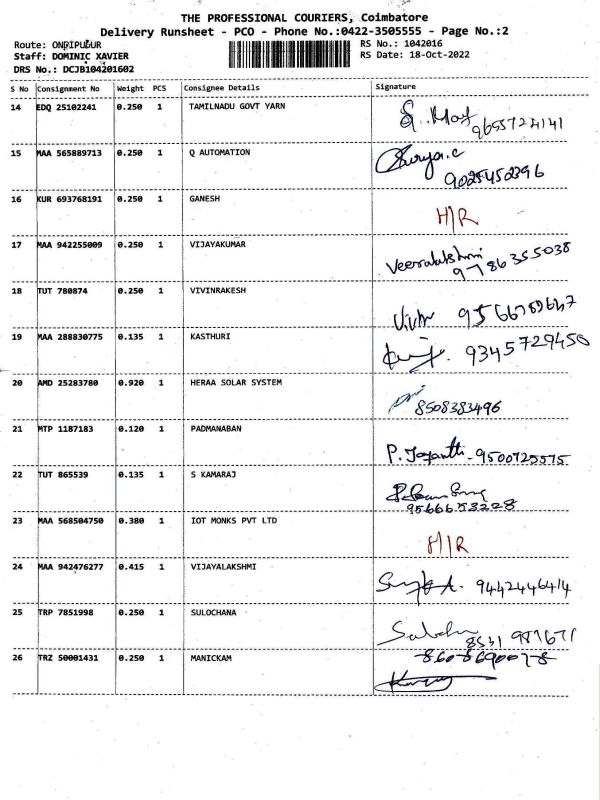 THE PROFESSIONAL COURIERS, Coimbatore
Delivery Runsheet - PCO - Phone No.:0422-3505555 - Page No.:2
Route: ONDIPUDUR
RS No.: 1042016
Staff: DOMINIC XAVIER
RS Date: 18-Oct-2022
DRS No.: DCJB104201602
S No Consignment No Weight PCS Consignee Details Signature
14 EDQ 25102241 0.250 1 TAMILNADU GOVT YARN
9655724141
15 MAA 565889713 0.250 1 Q AUTOMATION Surya.c
9025450396
16 KUR 693768191 0.250 1 GANESH
H/R
17 MAA 942255009 0.250 1 VIJAYAKUMAR
Veeralakshmi
9786355038
18 TUT 780874 0.250 1 VIVINRAKESH
19 MAA 288830775 0.135 1 KASTHURI
9345729450
20 AMD 25283780 0.920 1 HERAA SOLAR SYSTEM
8508383496
21 MTP 1187183 0.120 1 PADMANABAN
P. Jayanthi - 9500725575
22 TUT 865539 0.135 1 S KAMARAJ
9566653228
23 MAA 568504750 0.380 1 IOT MONKS PVT LTD
H/R
24 MAA 942476277 0.415 1 VIJAYALAKSHMI
9442446414
25 TRP 7851998 0.250 1 SULOCHANA
26 TRZ 50001431 0.250 1 MANICKAM